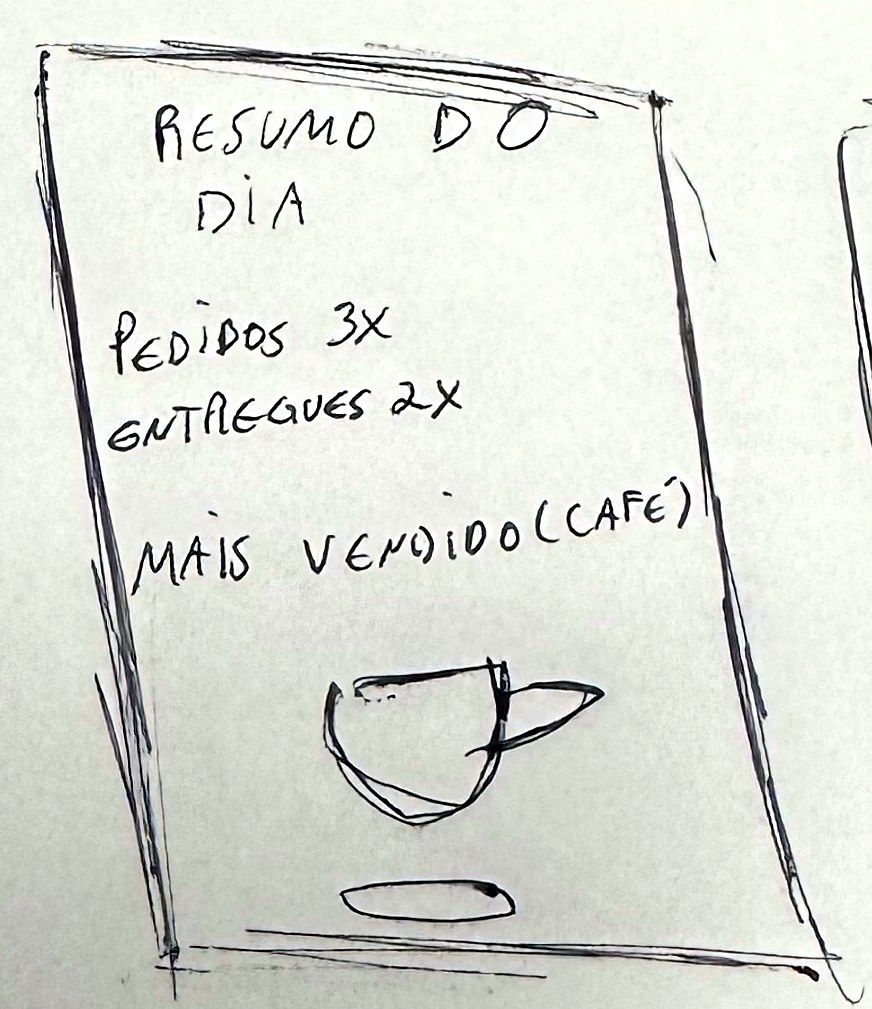 RESUMO DO
DIA
PEDIDOS 3X
ENTREGUES 2X
MAIS VENDIDO (CAFÉ)